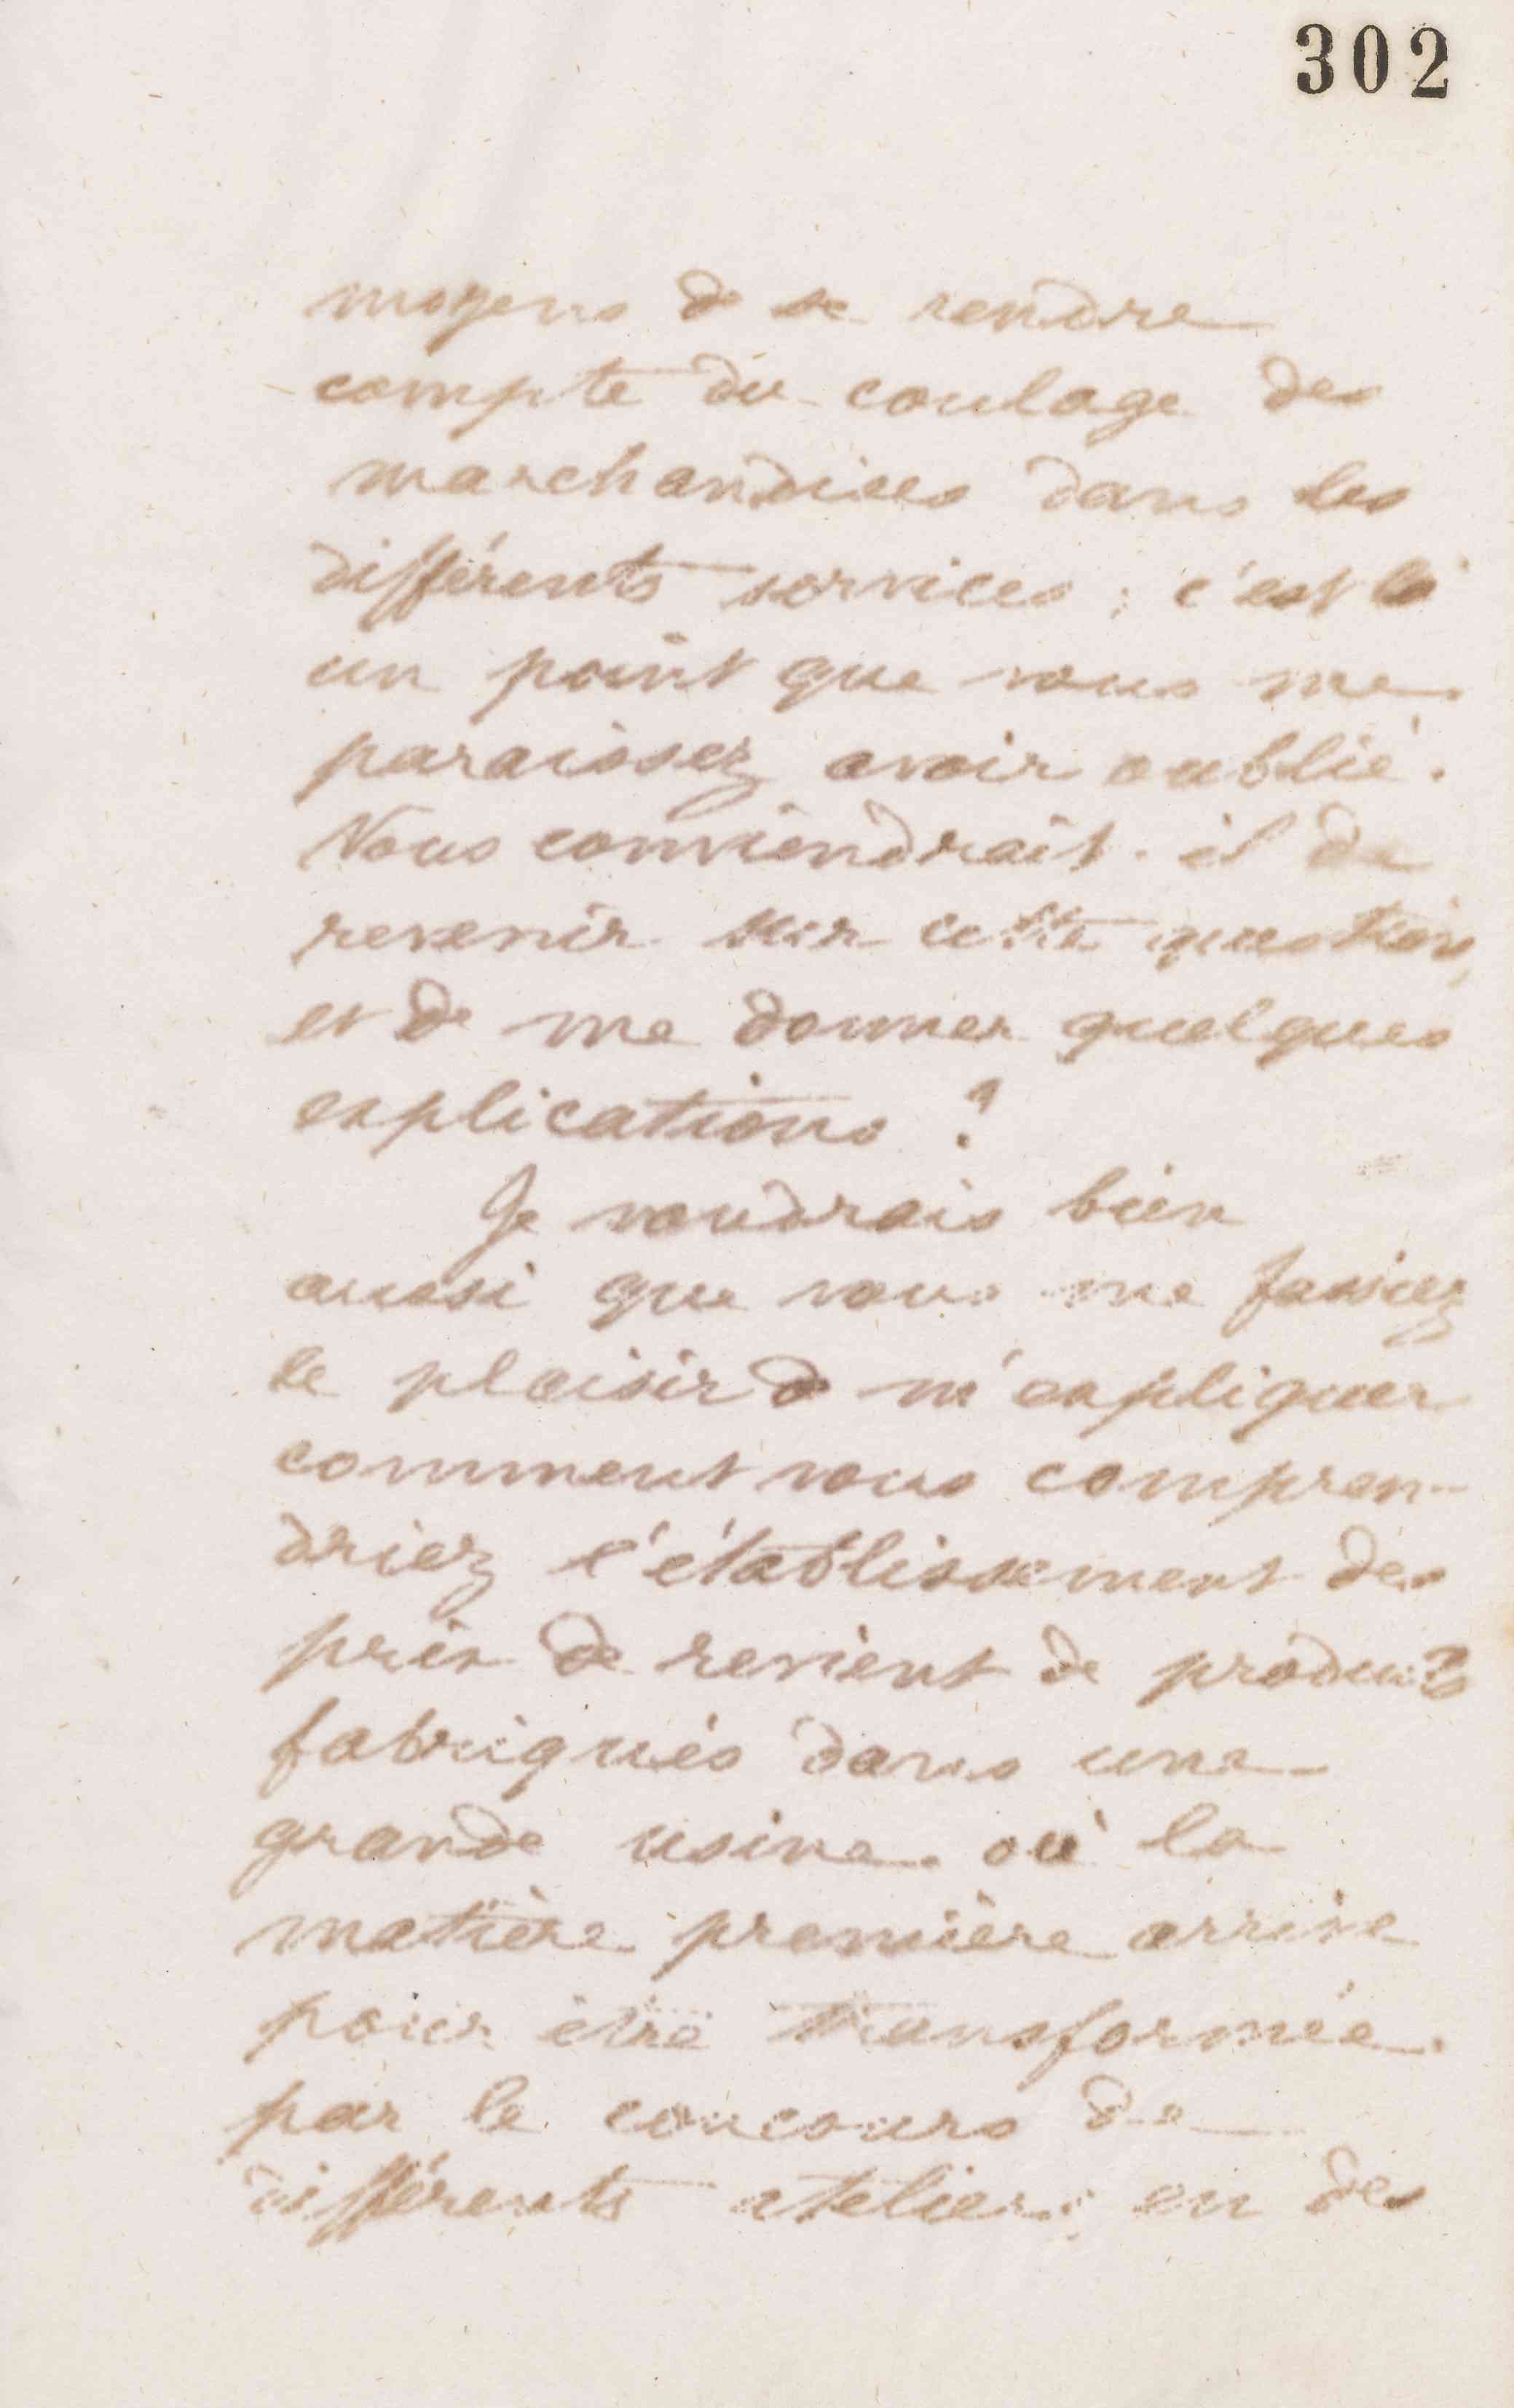 302
moyens de se rendre
compte du coulage des
marchandises dans les
différents services ; c'est là
un point que vous me
paraissez avoir oublié.
Vous conviendrait-il de
revenir sur cette question,
et de me donner quelques
explications ?
Je voudrais bien
aussi que vous me fassiez
le plaisir de m'expliquer
comment vous compren-
driez l'établissement des
prix de revient de produits
fabriqués dans une
grande usine où la
matière première arrive
pour être transformée
par le concours de
différents ateliers en des